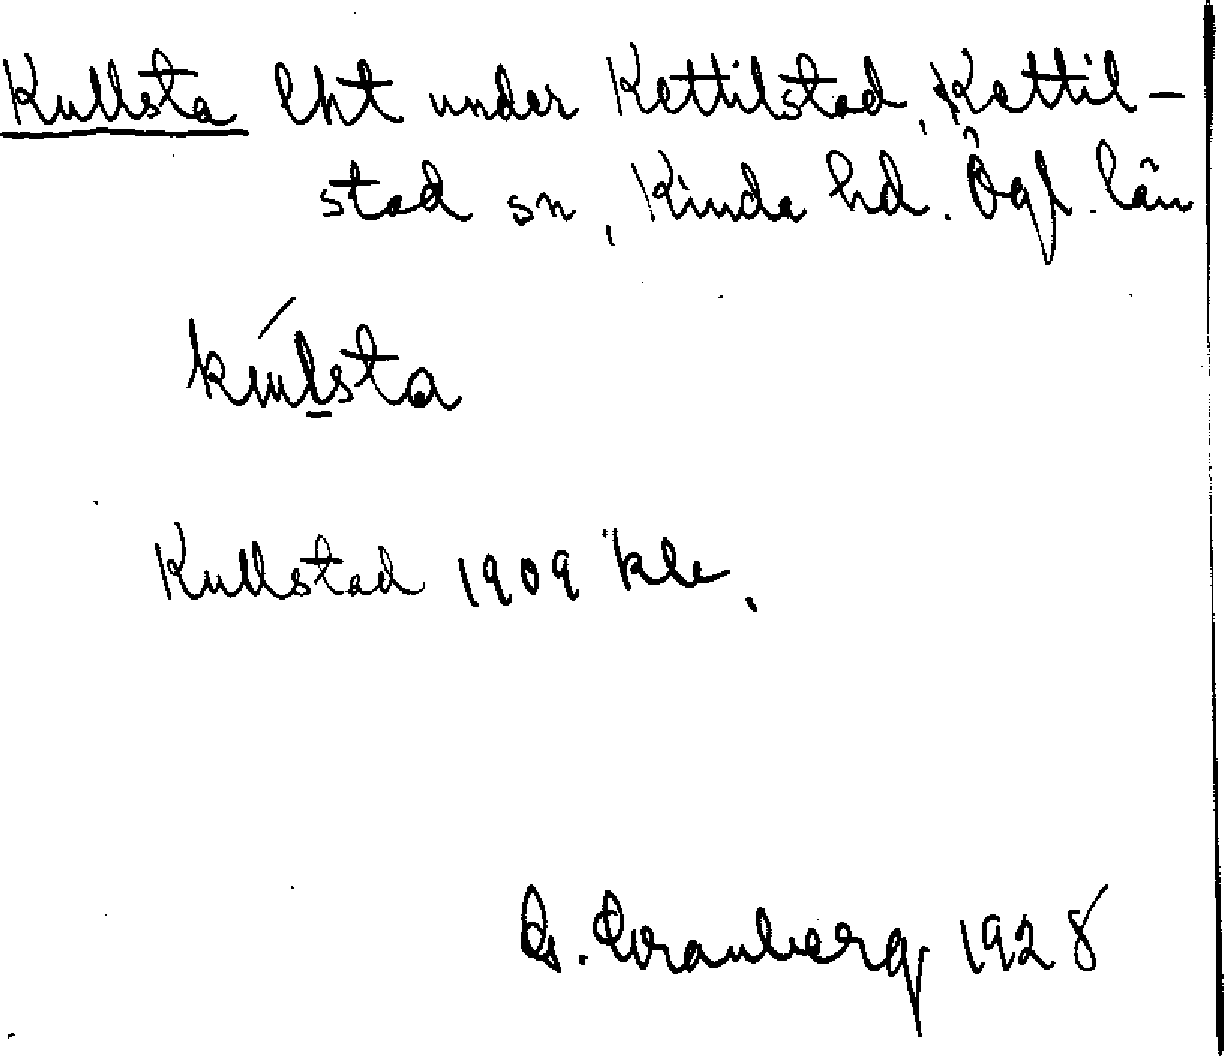 Kullsta lht under Kettilstad, Kettil-
stad sn, Kinda hd. Ögl. län
kúlsta
Kullstad 1909 kk.
G. Granberg 1928